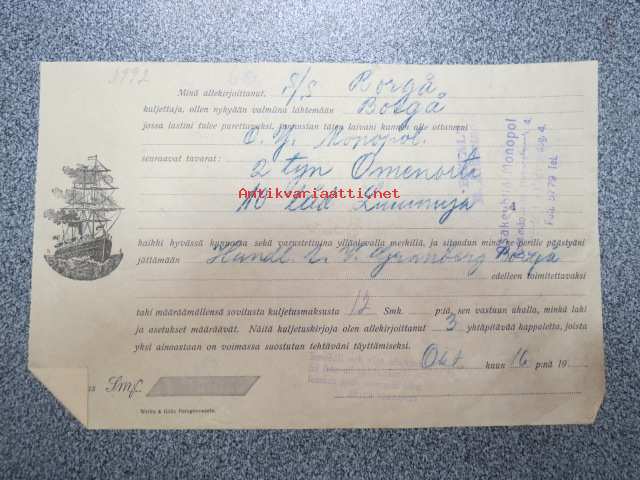 2992
Minä allekirjoittanut, S/S Borgå
kuljettaja, ollen nykyään valmiina lähtemään Borgå
jossa lastini tulee purettavaksi, tunnustan täten laivani kannen alle ottaneeni
O. Y. Monopol.
seuraavat tavarat:
2 tyn Omenoita
Antikvariaatti.net
10 laat
4
kaikki hyvässä kunnossa sekä varustettuina ylläolevalla merkillä, ja sitoudun minä ne perille päästyäni
jättämään Handl. Granberg Borgå
edelleen toimitettavaksi
tahi määräämällensä sovitusta kuljetusmaksusta 12 Smk. p:tä, sen vastuun uhalla, minkä laki
ja asetukset määräävät. Näitä kuljetuskirjoja olen allekirjoittanut 3 yhtäpitävää kappaletta, joista
yksi ainoastaan on voimassa suostutan tehtäväni täyttämiseksi.
Okt. kuun 16 p:nä 19
Smf
Weilin & Göös Paragonosasto.
Osakeyhtiö Monopol